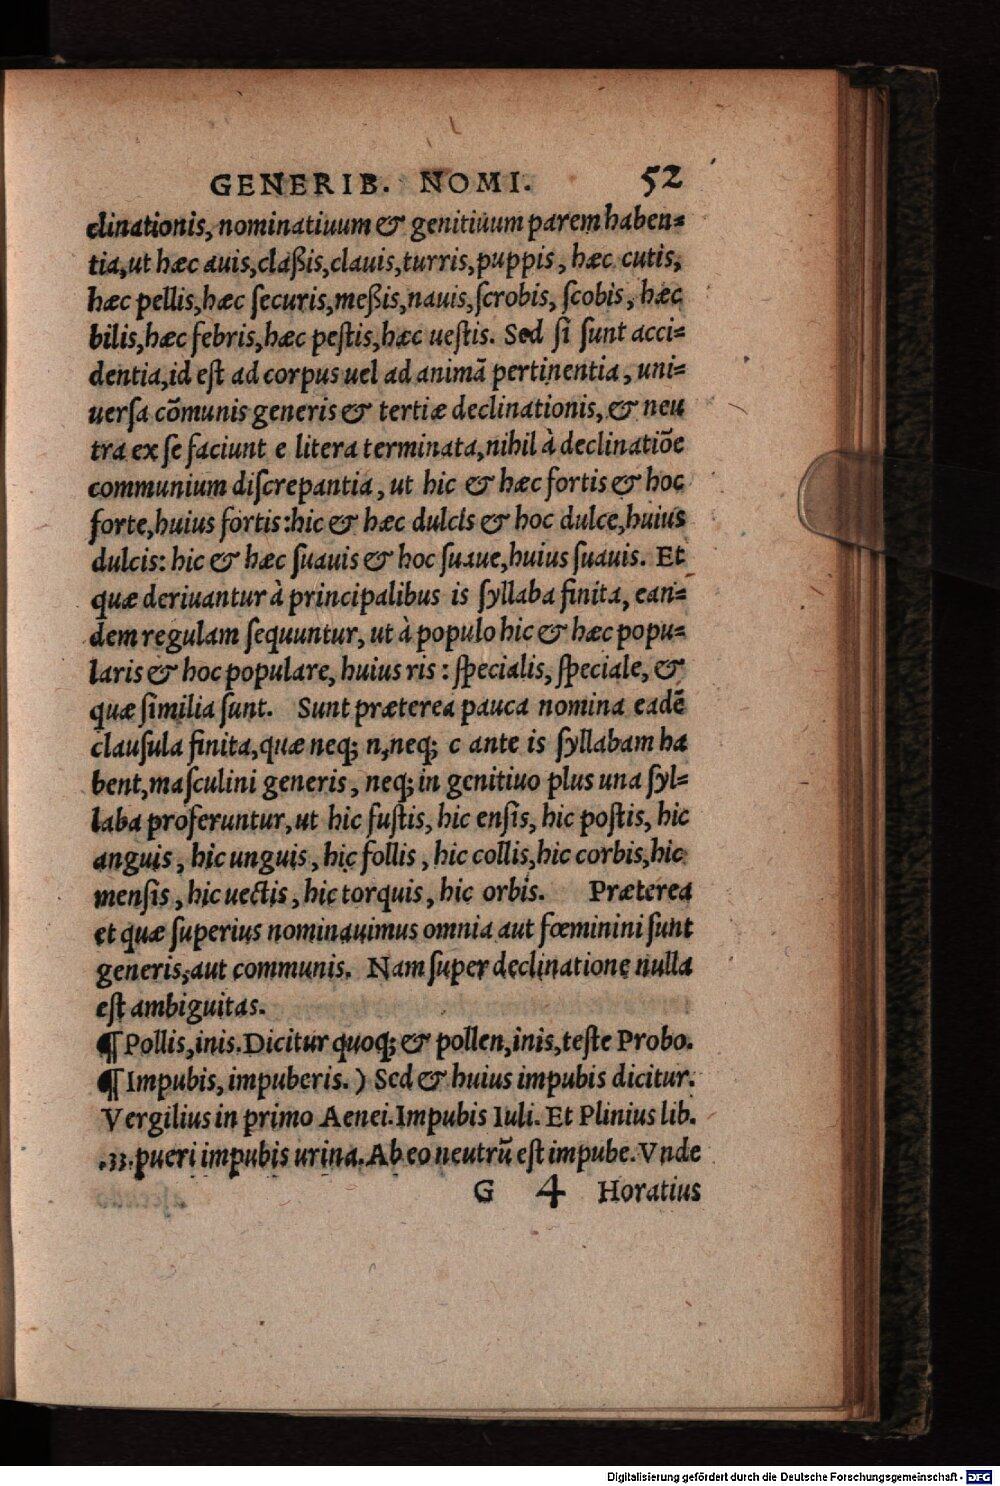 GENERIB. NOMI. 52
clinationis, nominatiuum & genitiuum parem haben=
tia,ut hæc auis,claßis,clauis,turris,puppis, hæc cutis,
hæc pellis,hæc ſecuris,meßis,nauis,ſcrobis, ſcobis, hæc
bilis,hæc febris,hæc peſtis,hæc ueſtis. Sed ſi ſunt acci=
dentia,id eſt ad corpus uel ad animã pertinentia, uni=
uerſa cõmunis generis & tertiæ declinationis, & neu
tra ex ſe faciunt e litera terminata,nihil à declinatiõe
communium diſcrepantia, ut hic & hæc fortis & hoc
forte,huius fortis:hic & hæc dulcis & hoc dulce,huius
dulcis: hic & hæc ſuauis & hoc ſuaue,huius ſuauis. Et
quæ deriuantur à principalibus is ſyllaba finita, ean=
dem regulam ſequuntur, ut à populo hic & hæc popu=
laris & hoc populare, huius ris: ſpecialis, ſpeciale, &
quæ ſimilia ſunt. Sunt præterea pauca nomina eadẽ
clauſula finita,quæ neq; n,neq; c ante is ſyllabam ha
bent,maſculini generis, neq; in genitiuo plus una ſyl=
laba proferuntur,ut hic fuſtis, hic enſis, hic poſtis, hic
anguis, hic unguis, hic follis, hic collis,hic corbis,hic
menſis, hic uectis, hic torquis, hic orbis. Præterea
et quæ ſuperius nominauimus omnia aut fœminini ſunt
generis,aut communis. Nam ſuper declinatione nulla
eſt ambiguitas.
¶ Pollis,inis. Dicitur quoq; & pollen,inis,teſte Probo.
¶ Impubis, impuberis. ) Sed & huius impubis dicitur.
Vergilius in primo Aenei. Impubis Iuli. Et Plinius lib.
.33. pueri impubis urina. Ab eo neutrũ eſt impube. Vnde
G 4 Horatius
Digitalisierung gefördert durch die Deutsche Forschungsgemeinschaft - DFG